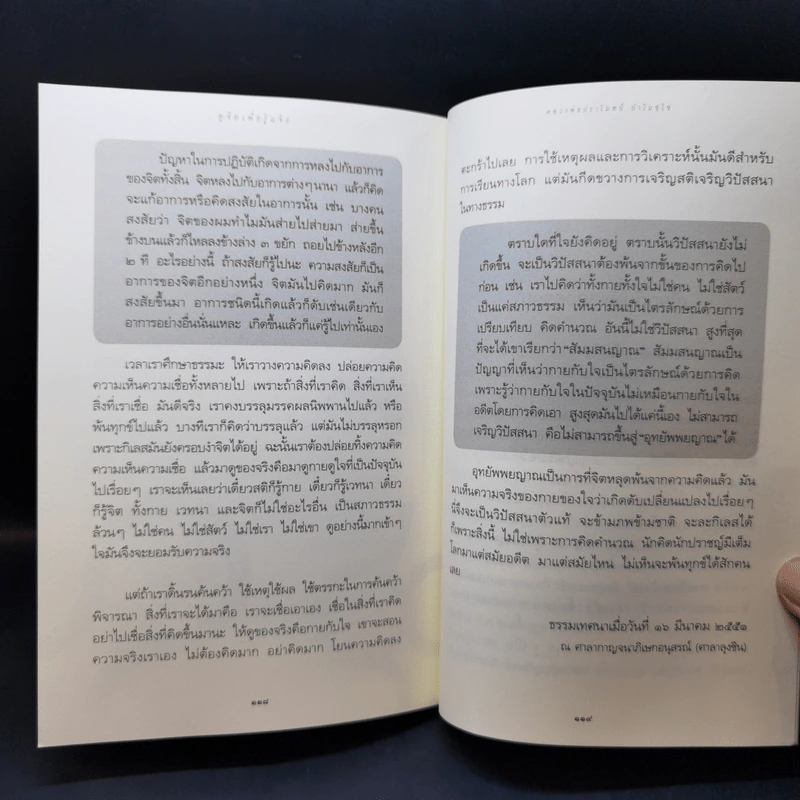 ดูจิตเพื่อรู้แจ้ง
ปัญหาในการปฏิบัติเกิดจากการหลงไปกับอาการ
ของจิตทั้งสิ้น จิตหลงไปกับอาการต่างๆนานา แล้วก็คิด
จะแก้อาการหรือคิดสงสัยในอาการนั้น เช่น บางคน
สงสัยว่า จิตของผมทำไมมันส่ายไปส่ายมา ส่ายขึ้น
ข้างบนแล้วก็ไหลลงข้างล่าง ๓ ขยัก ถอยไปข้างหลังอีก
๒ ที อะไรอย่างนี้ ถ้าสงสัยก็รู้ไปนะ ความสงสัยก็เป็น
อาการของจิตอีกอย่างหนึ่ง จิตมันไปคิดมาก มันก็
สงสัยขึ้นมา อาการชนิดนี้เกิดแล้วก็ดับเช่นเดียวกับ
อาการอย่างอื่นนั่นแหละ เกิดขึ้นแล้วก็แค่รู้ไปเท่านั้นเอง
เวลาเราศึกษาธรรมะ ให้เราวางความคิดลง ปล่อยความคิด
ความเห็นความเชื่อทั้งหลายไป เพราะถ้าสิ่งที่เราคิด สิ่งที่เราเห็น
สิ่งที่เราเชื่อ มันดีจริง เราคงบรรลุมรรคผลนิพพานไปแล้ว หรือ
พ้นทุกข์ไปแล้ว บางทีเราก็คิดว่าบรรลุแล้ว แต่มันไม่บรรลุหรอก
เพราะกิเลสมันยังครอบงำจิตได้อยู่ ฉะนั้นเราต้องปล่อยทิ้งความคิด
ความเห็นความเชื่อ แล้วมาดูของจริงคือมาดูกายดูใจที่เป็นปัจจุบัน
ไปเรื่อยๆ เราจะเห็นเลยว่าเดี๋ยวสติก็รู้กาย เดี๋ยวก็รู้เวทนา เดี๋ยว
ก็รู้จิต ทั้งกาย เวทนา และจิตก็ไม่ใช่อะไรอื่น เป็นสภาวธรรม
ล้วนๆ ไม่ใช่คน ไม่ใช่สัตว์ ไม่ใช่เรา ไม่ใช่เขา ดูอย่างนี้มากเข้าๆ
ใจมันจึงจะยอมรับความจริง
แต่ถ้าเราดิ้นรนค้นคว้า ใช้เหตุใช้ผล ใช้ตรรกะในการค้นคว้า
พิจารณา สิ่งที่เราจะได้มาคือ เราจะเชื่อเอาเอง เชื่อในสิ่งที่เราคิด
อย่าไปเชื่อสิ่งที่คิดขึ้นมานะ ให้ดูของจริงคือกายกับใจ เขาจะสอน
ความจริงเราเอง ไม่ต้องคิดมาก อย่าคิดมาก โยนความคิดลง
๑๑๘
หลวงพ่อปราโมทย์ ปาโมชฺโช
ตะกร้าไปเลย การใช้เหตุผลและการวิเคราะห์นั้นมันดีสำหรับ
การเรียนทางโลก แต่มันกีดขวางการเจริญสติเจริญวิปัสสนา
ในทางธรรม
ตราบใดที่ใจยังคิดอยู่ ตราบนั้นวิปัสสนายังไม่
เกิดขึ้น จะเป็นวิปัสสนาต้องพ้นจากขั้นของการคิดไป
ก่อน เช่น เราไปคิดว่าทั้งกายทั้งใจไม่ใช่คน ไม่ใช่สัตว์
เป็นแค่สภาวธรรม เห็นว่ามันเป็นไตรลักษณ์ด้วยการ
เปรียบเทียบ คิดคำนวณ อันนี้ไม่ใช่วิปัสสนา สูงที่สุด
ที่จะได้เขาเรียกว่า “สัมมสนญาณ” สัมมสนญาณเป็น
ปัญญาที่เห็นว่ากายกับใจเป็นไตรลักษณ์ด้วยการคิด
เพราะรู้ว่ากายกับใจในปัจจุบันไม่เหมือนกายกับใจใน
อดีตโดยการคิดเอา สูงสุดมันไปได้แค่นี้เอง ไม่สามารถ
เจริญวิปัสสนา คือไม่สามารถขึ้นสู่ “อุทยัพพยญาณ” ได้
อุทยัพพยญาณเป็นการที่จิตหลุดพ้นจากความคิดแล้ว มัน
มาเห็นความจริงของกายของใจว่าเกิดดับเปลี่ยนแปลงไปเรื่อยๆ
นี่จึงจะเป็นวิปัสสนาตัวแท้ จะข้ามภพข้ามชาติ จะละกิเลสได้
ก็เพราะสิ่งนี้ ไม่ใช่เพราะการคิดคำนวณ นักคิดนักปราชญ์มีเต็ม
โลกมาแต่สมัยอดีต มาแต่สมัยไหน ไม่เห็นจะพ้นทุกข์ได้สักคน
เลย
ธรรมเทศนาเมื่อวันที่ ๑๖ มีนาคม ๒๕๕๑
ณ ศาลากาญจนาภิเษกอนุสรณ์ (ศาลาลุงชิน)
๑๑๙